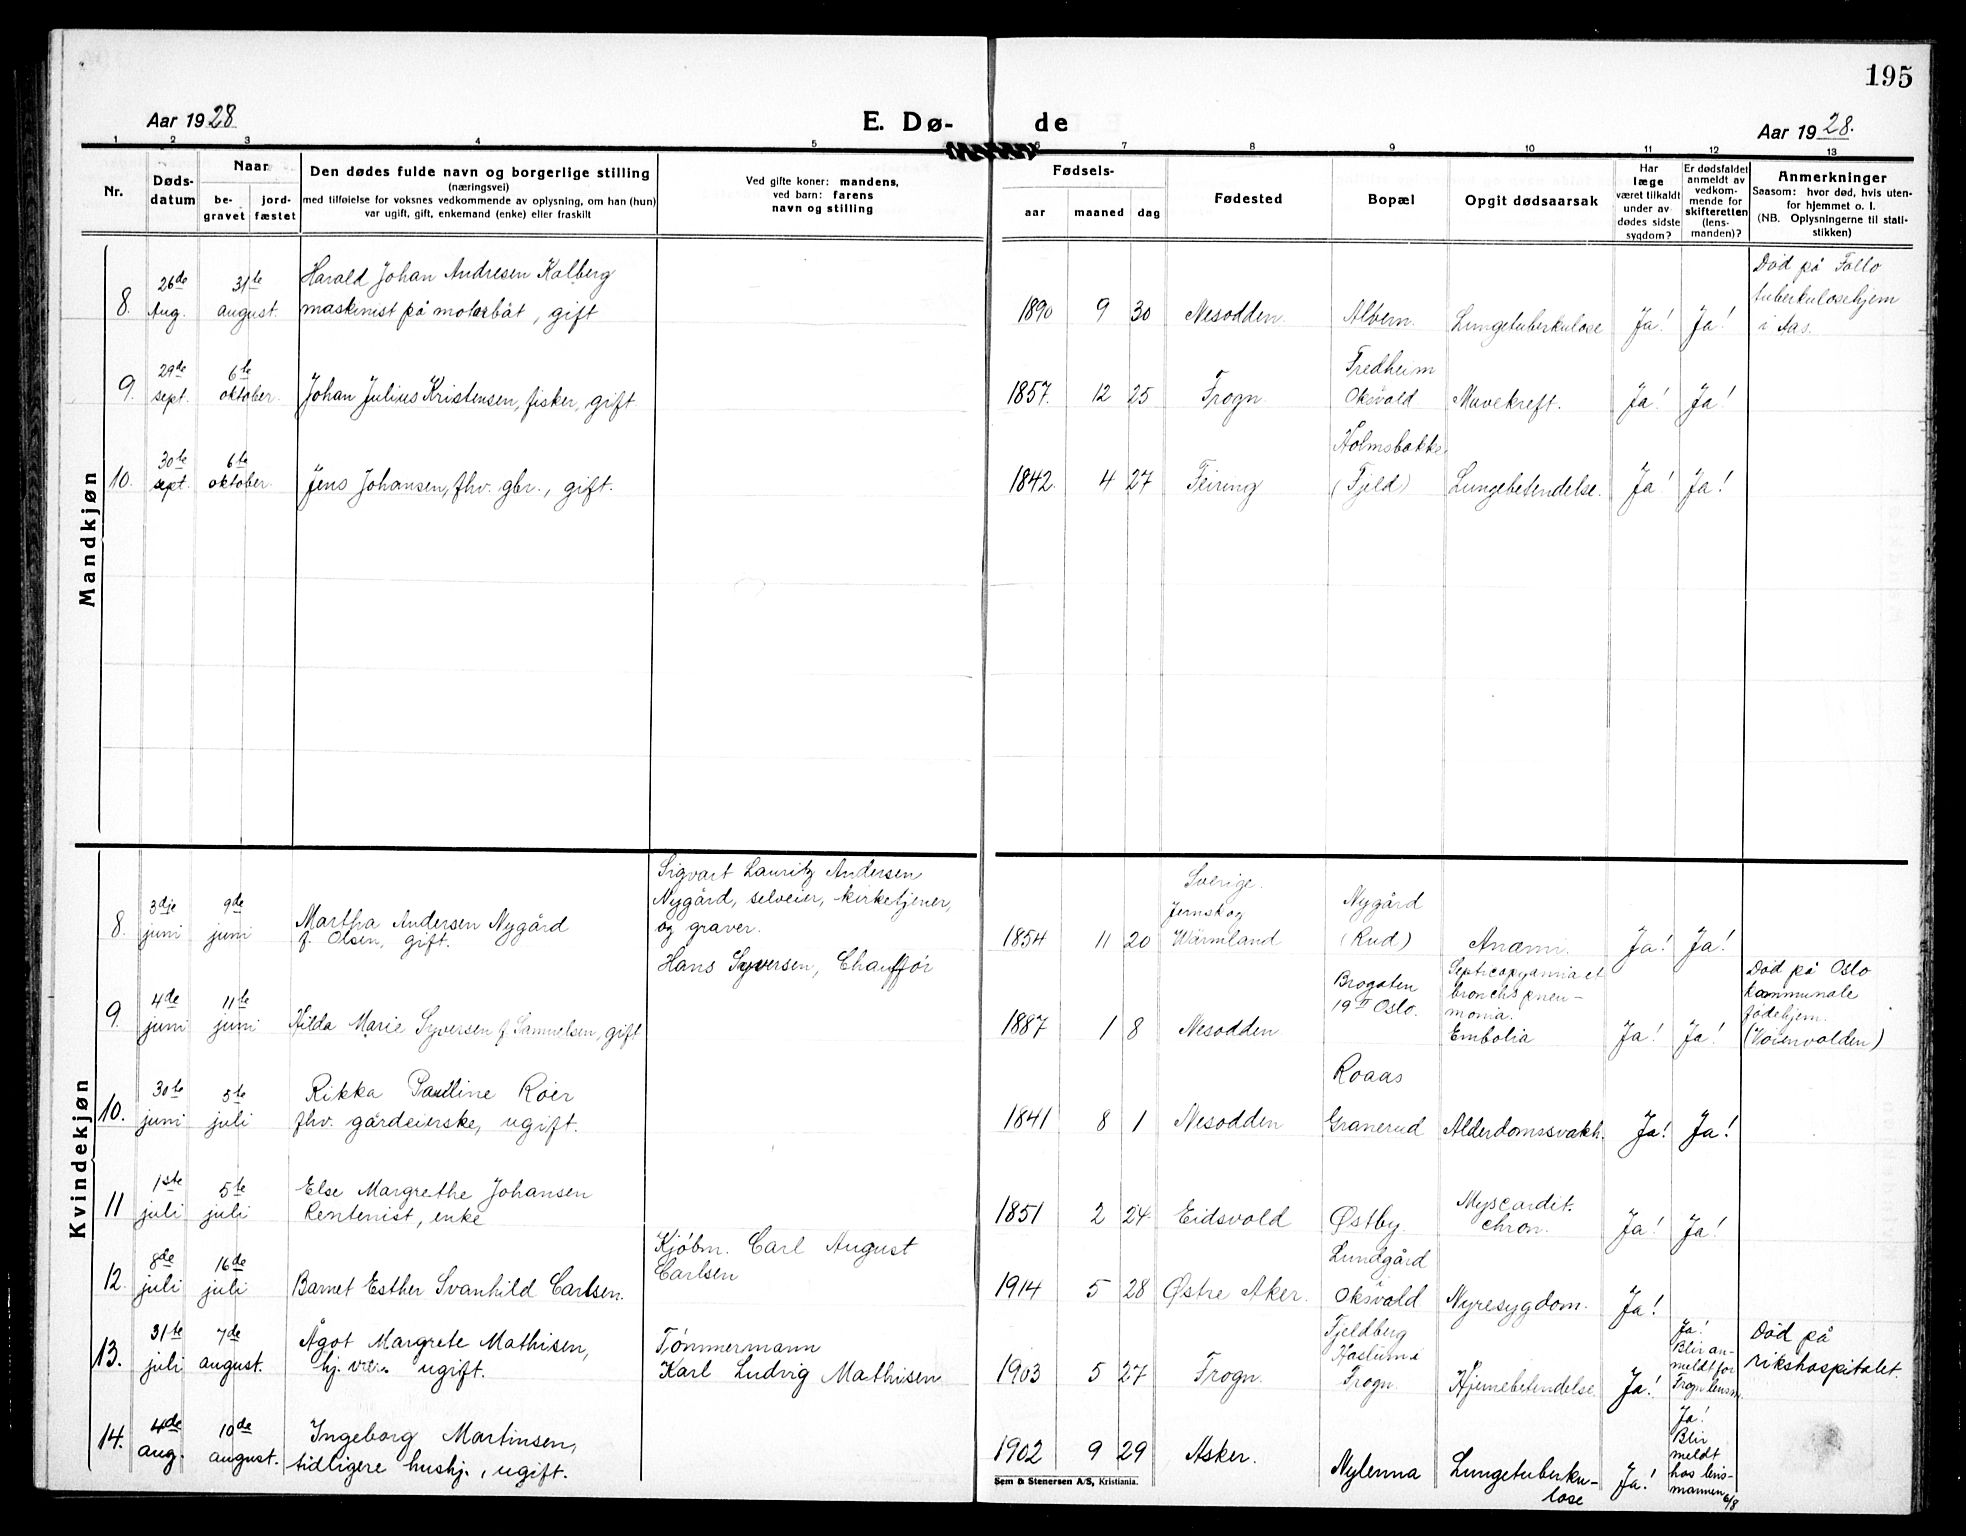 195
Aar 1928
E. Dø-
de
Aar 1928.
1 2 3 4 5 6 7 8 9 10 11 12 13
Nr.
Døds-
datum
Naar
be-
gravet
jord-
fæstet
Den dødes fulde navn og borgerlige stilling
(næringsvei)
med tilføielse for voksnes vedkommende av oplysning, om han (hun)
var ugift, gift, enkemand (enke) eller fraskilt
Ved gifte koner: mandens,
ved barn: farens
navn og stilling
Fødsels-
aar maaned dag
Fødested
Bopæl
Opgit dødsaarsak
Har
læge
været tilkaldt
under av-
dødes sidste
sygdom?
Er dødsfaldet
anmeldt av
vedkom-
mende for
skifteretten
(lens-
manden)?
Anmerkninger
Saasom: hvor død, hvis uten-
for hjemmet o. l.
(NB. Oplysningerne til stati-
stikken)
Mandkjøn
8.
26de
Aug.
31te
august.
Harald Johan Andresen Kalberg
maskinist på motorbåt, gift
1890 9 30
Nesodden.
Alvern.
Lungetuberkulose
Ja! Ja!
Död på Follo
tuberkulosehjem
i Aas.
9.
29de
sept.
6te
oktober.
Johan Julius Kristensen, fisker, gift
1857. 12 25
Frogn
Fredheim
Oksvald
Mavekreft.
Ja! Ja!
10.
30te
sept.
6te
oktober.
Jens Johansen, fhv. gbr., gift.
1842. 4 27
Feiring
Holmsbakk.
(Fjeld)
Lungebetendelse.
Ja! Ja!
Kvindekjøn
8.
3dje
juni
9de
juni
Martha Andersen Nygård
f. Olsen, gift.
Sigvart Lauritz Andersen
Nygård, selveier, kirketjener,
og graver.
1854 11 20
Sverige.
Jernskog
Wärmland
Nygård
(Rud)
Anæmi.
Ja! Ja!
9.
4de
juni
11te
juni
Hilda Marie Syversen f. Samuelsen, gift
Hans Syversen, Chauffør
1887 1 8
Nesodden
Brogaten
19 II Oslo.
Septicopyämia et
bronchspneu-
monia.
Embolia
Ja! Ja!
Död på Oslo
Kommunale
fødehjem.
(Voienvolden)
10.
30te
juni
5te
juli
Rikka Pauline Röer
fhv. gårdeierske, ugift.
1841 8 1
Nesodden
Roaas
Granerud
Alderdomssvakh.
Ja! Ja!
11
1ste
juli
5te
juli
Else Margrethe Johansen
Rentenist, enke
1851 2 24
Eidsvold
Østby.
Myscardit.
chron.
Ja! Ja!
12.
8de
juli
16de
juli
Barnet Esther Svanhild Carlsen.
Kjøbm. Carl August
Carlsen
1914 5 28
Østre Aker.
Lundgård
Oksvald
Nyresygdom.
Ja!
13.
31te
juli
7de
august.
Ågot Margrete Mathisen,
ugift.
Tömmermann
Karl Ludvig Mathisen
1903 5 27
Frogn.
Fjeldberg
Haslum i
Frogn.
Hjernebetendelse
Ja!
Ja!
Blir an-
meldt for
Frogn lensm.
Död på
rikshospitalet.
14.
4de
aug.
10de
august.
Ingeborg Martinsen,
tidligere hushj., ugift.
1902 9 29
Asker.
Nylenna
Lungetuberku-
lose
Ja!
Ja!
Blir
meldt
hos lens-
mannen 6/8
Sem & Stenersen A/S, Kristiania.